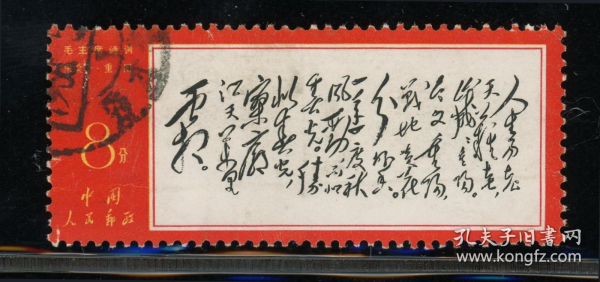 毛主席诗词
重
8分
中国
人民邮政
人生易老
天难老,
岁岁重阳。
今又重阳,
战地黄花
分外香。
一年一度秋
风劲,不似
春光。胜
似春光,
寥廓
江天万里
霜。
孔夫子旧书网
www.kongfz.com